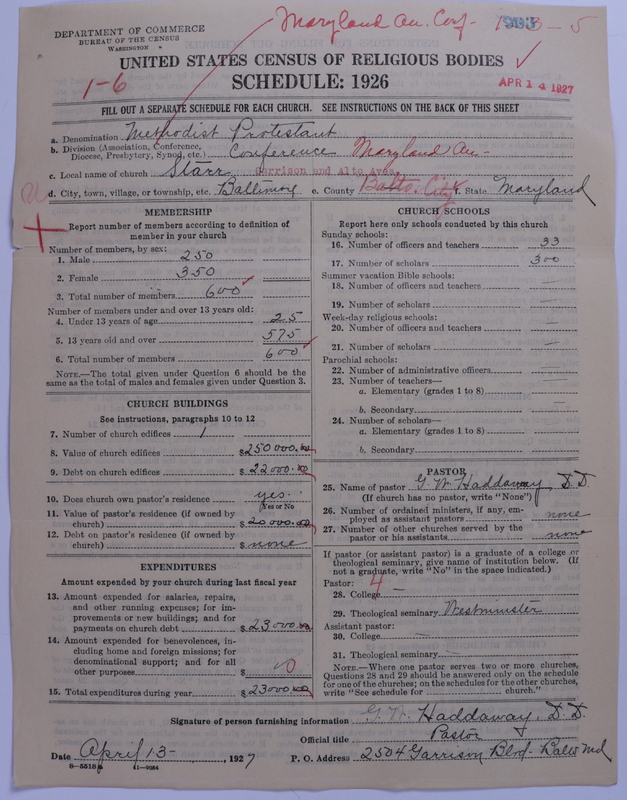 DEPARTMENT OF COMMERCE
BUREAU OF THE CENSUS
WASHINGTON
Maryland An. Conf.
1-6
UNITED STATES CENSUS OF RELIGIOUS BODIES
SCHEDULE: 1926
APR 14 1927
FILL OUT A SEPARATE SCHEDULE FOR EACH CHURCH. SEE INSTRUCTIONS ON THE BACK OF THIS SHEET
a. Denomination Methodist Protestant
b. Division (Association, Conference, Diocese, Presbytery, Synod, etc.) Conference Maryland An-
c. Local name of church Starr Garrison and Alto Aves.
d. City, town, village, or township, etc. Baltimore e. County Balto. City f. State Maryland
MEMBERSHIP
Report number of members according to definition of
member in your church
Number of members, by sex:
1. Male 250
2. Female 350
3. Total number of members 600
Number of members under and over 13 years old:
4. Under 13 years of age 25
5. 13 years old and over 575
6. Total number of members 600
NOTE.—The total given under Question 6 should be
same as the total of males and females given under Question 3.
CHURCH BUILDINGS
See instructions, paragraphs 10 to 12
7. Number of church edifices 1
8. Value of church edifices $250000.00
9. Debt on church edifices $22000.00
10. Does church own pastor's residence yes.
(Yes or No)
11. Value of pastor's residence (if owned by
church) $20000.00
12. Debt on pastor's residence (if owned by
church) $none
EXPENDITURES
Amount expended by your church during last fiscal year
13. Amount expended for salaries, repairs,
and other running expenses; for im-
provements or new buildings; and for
payments on church debt $23000.00
14. Amount expended for benevolences, in-
cluding home and foreign missions; for
denominational support; and for all
other purposes $ 0
15. Total expenditures during year $23000.00
CHURCH SCHOOLS
Report here only schools conducted by this church
Sunday schools:
16. Number of officers and teachers 33
17. Number of scholars 300
Summer vacation Bible schools:
18. Number of officers and teachers —
19. Number of scholars —
Week-day religious schools:
20. Number of officers and teachers —
21. Number of scholars —
Parochial schools:
22. Number of administrative officers —
23. Number of teachers—
a. Elementary (grades 1 to 8) —
b. Secondary —
24. Number of scholars—
a. Elementary (grades 1 to 8) —
b. Secondary —
PASTOR
25. Name of pastor G. W. Haddaway, D.D.
(If church has no pastor, write "None")
26. Number of ordained ministers, if any, em-
ployed as assistant pastors none
27. Number of other churches served by the
pastor or his assistants none
If pastor (or assistant pastor) is a graduate of a college or
theological seminary, give name of institution below. (If
not a graduate, write "No" in the space indicated.)
Pastor: 4
28. College —
29. Theological seminary Westminster
Assistant pastor:
30. College —
31. Theological seminary —
NOTE.—Where one pastor serves two or more churches,
Questions 28 and 29 should be answered only on the schedule
for one of the churches; on the schedules for the other churches,
write "See schedule for church."
Signature of person furnishing information G. W. Haddaway, D.D.
Official title Pastor
Date April 13-, 1927 P. O. Address 2504 Garrison Blvd. Balto Md
8-5518 a 11-9034